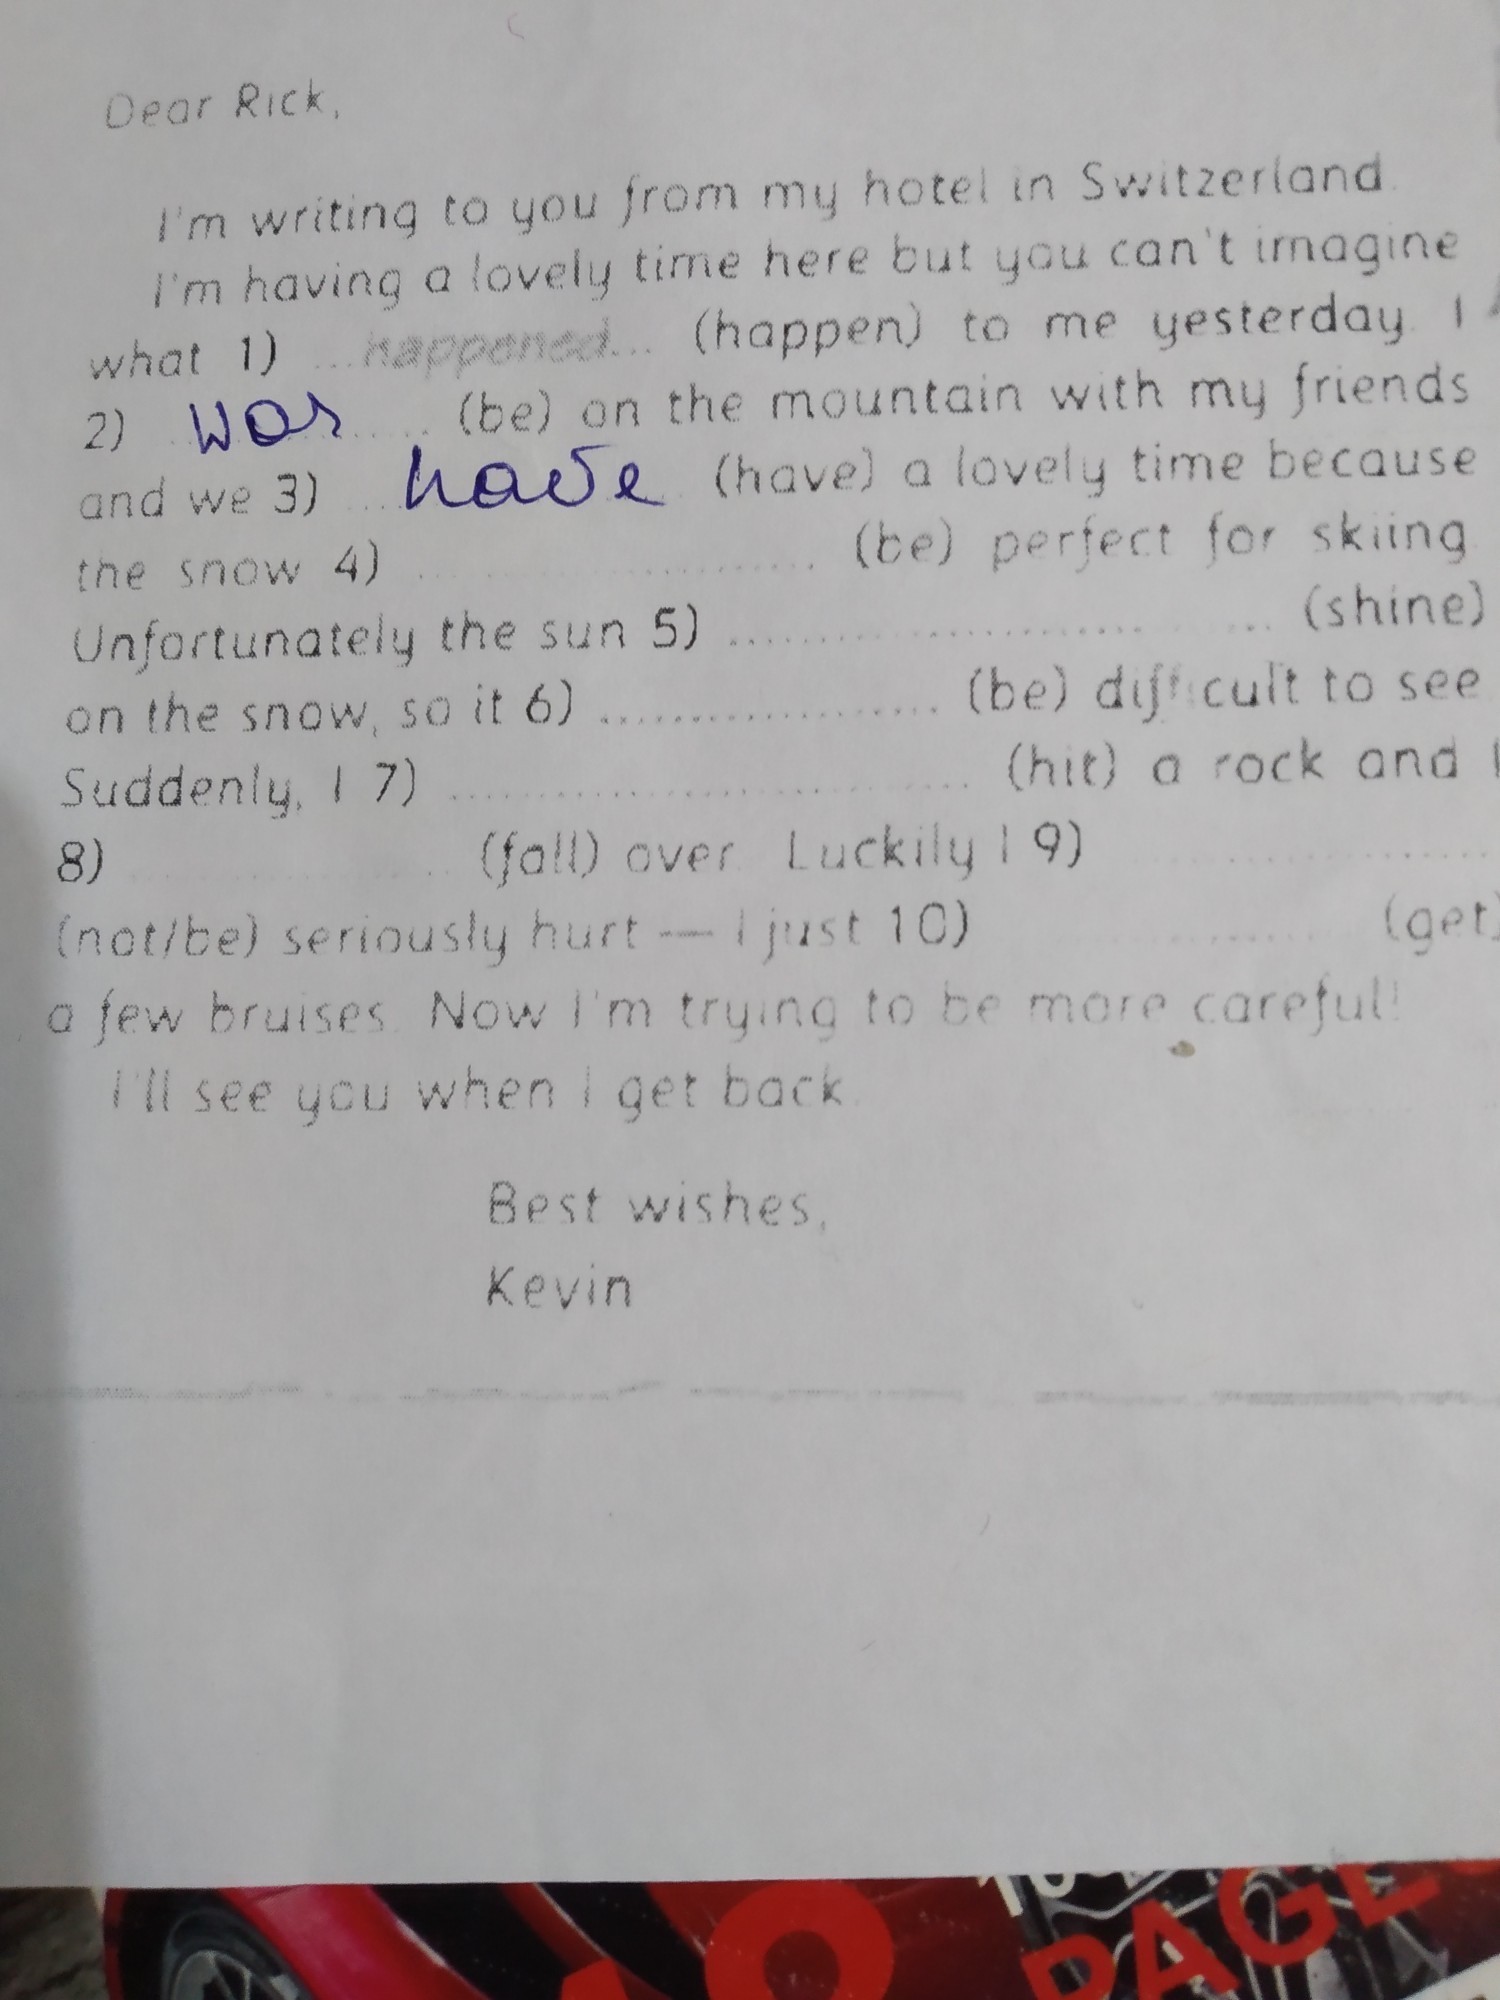 Dear Rick,
I'm writing to you from my hotel in Switzerland.
I'm having a lovely time here but you can't imagine
what 1) ...happened... (happen) to me yesterday. I
2) was (be) on the mountain with my friends
and we 3) have (have) a lovely time because
the snow 4) .................... (be) perfect for skiing.
Unfortunately the sun 5) .................... (shine)
on the snow, so it 6) .................... (be) difficult to see.
Suddenly, I 7) .................... (hit) a rock and I
8) .................... (fall) over. Luckily I 9) ....................
(not/be) seriously hurt — I just 10) .................... (get)
a few bruises. Now I'm trying to be more careful!
I'll see you when I get back.
Best wishes,
Kevin
PAGE